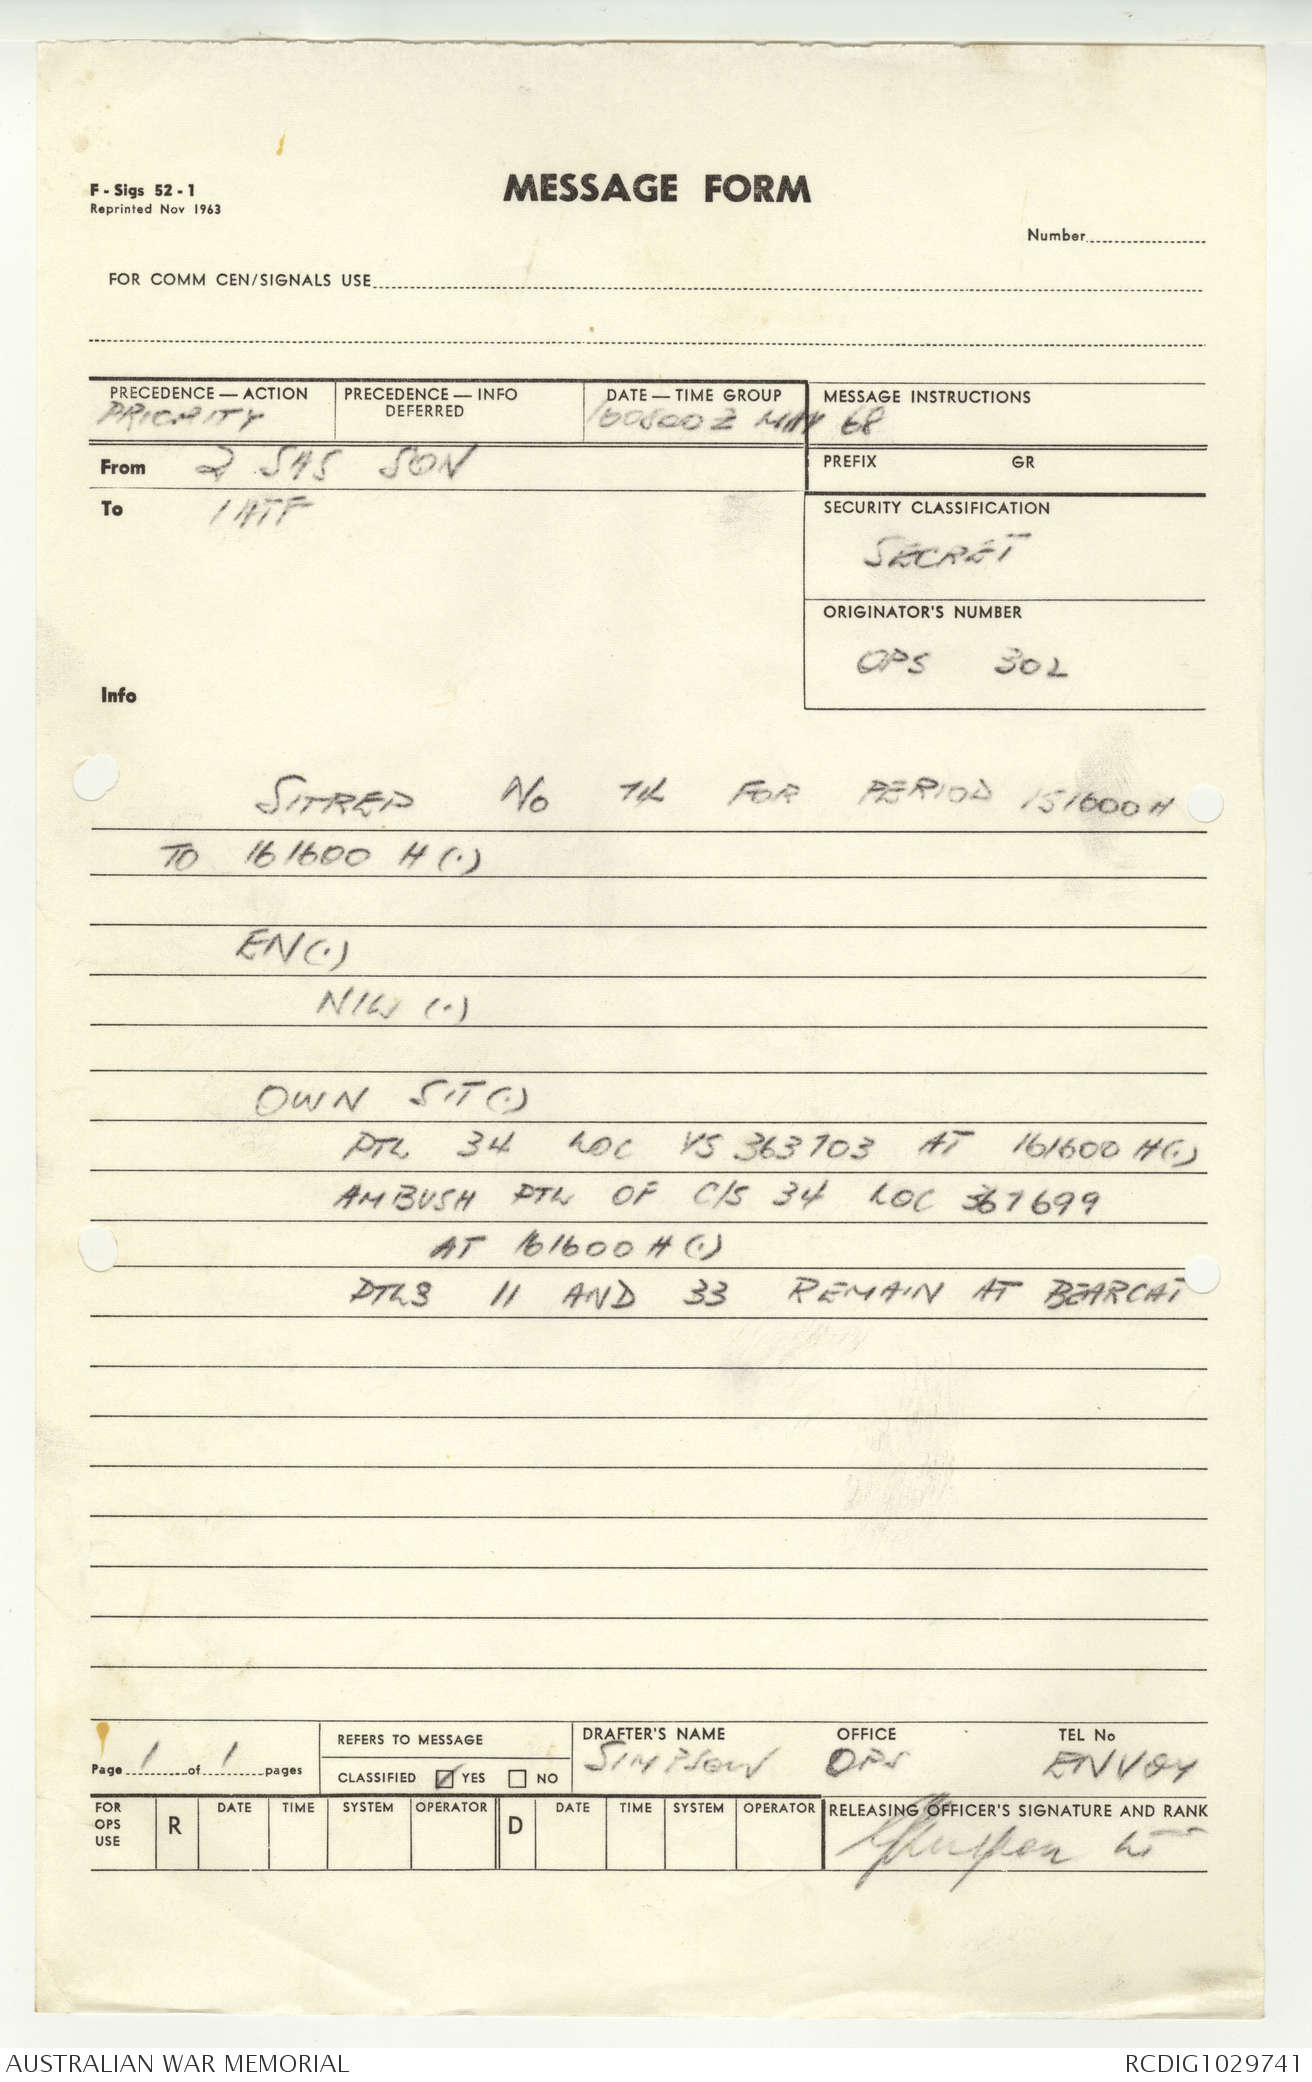 F - Sigs 52 - 1
Reprinted Nov 1963
MESSAGE FORM
Number
FOR COMM CEN/SIGNALS USE
PRECEDENCE — ACTION
PRIORITY
PRECEDENCE — INFO
DEFERRED
DATE — TIME GROUP
160800Z MAY 68
MESSAGE INSTRUCTIONS
From 2 SAS SQN
PREFIX GR
To 1 ATF
SECURITY CLASSIFICATION
SECRET
ORIGINATOR'S NUMBER
OPS 302
Info
SITREP No 74 FOR PERIOD 151600H
TO 161600 H (.)
EN(.)
NIL (.)
OWN SIT(.)
PTL 34 LOC YS 363703 AT 161600 H(.)
AMBUSH PTL OF C/S 34 LOC 367699
AT 161600 H (.)
PTLS 11 AND 33 REMAIN AT BEARCAT
Page 1 of 1 pages
REFERS TO MESSAGE
CLASSIFIED YES NO
DRAFTER'S NAME
SIMPSON
OFFICE
OPS
TEL No
ENVOY
FOR OPS USE
R
DATE TIME SYSTEM OPERATOR
D
DATE TIME SYSTEM OPERATOR
RELEASING OFFICER'S SIGNATURE AND RANK
Simpson LT
AUSTRALIAN WAR MEMORIAL
RCDIG1029741